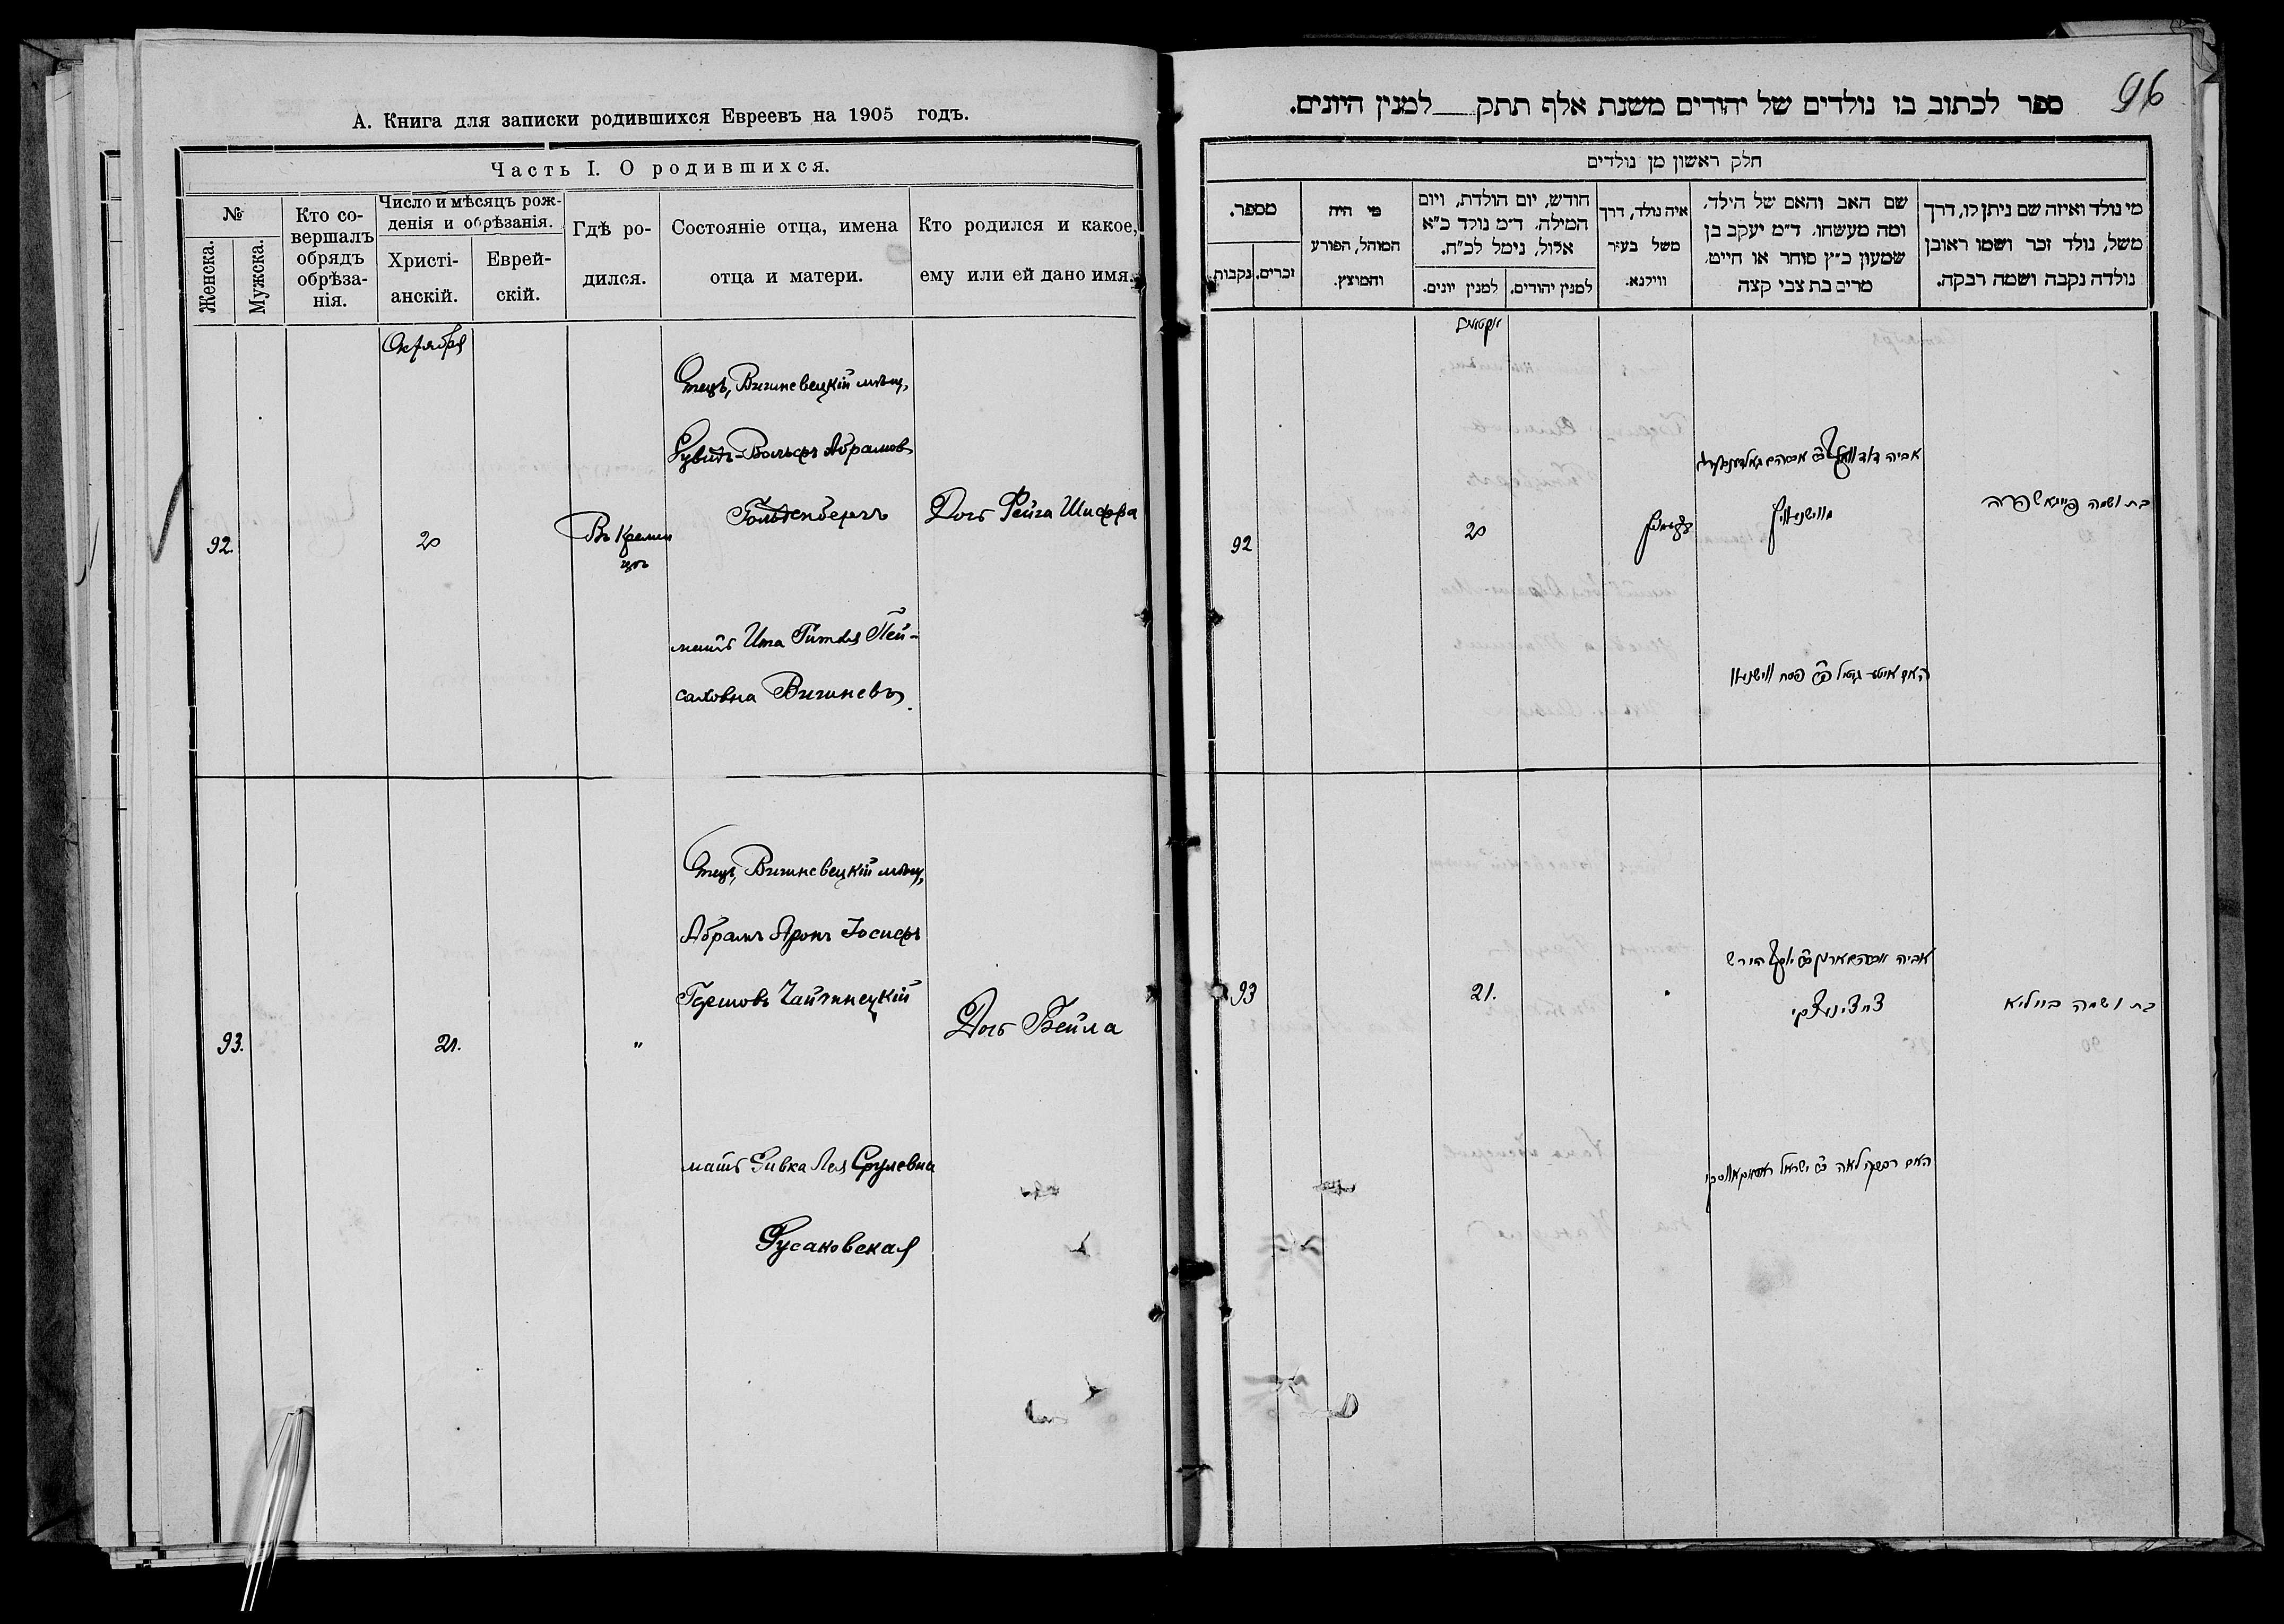 А. Книга для записки родившихся Евреевъ на 1905 годъ.
Часть I. О родившихся.
№
Женска.
Мужска.
Кто со-
вершалъ
обрядъ
обрѣза-
нія.
Число и мѣсяцъ рож-
денія и обрѣзанія.
Христі-
анскій.
Еврей-
скій.
Гдѣ ро-
дился.
Состояніе отца, имена
отца и матери.
Кто родился и какое,
ему или ей дано имя.
Октября
92.
20
Въ Кремен
цѣ
Отецъ, Вишневецкій мѣщ,
Дувидъ-Вольфъ Абрамовъ
Гольденбергъ
мать Ита Гитля Пей-
саховна Вишневъ
Дочь Фейга Шифра
93.
21.
"
Отецъ, Вишневецкій мѣщ,
Абрамъ Аронъ Іосифъ
Гершовъ Чайчинецкій
мать Ривка Лея Срулевна
Русаковская
Дочь Бейла
96
ספר לכתוב בו נולדים של יהודים משנת אלף תתק למנין היונים.
חלק ראשון מן נולדים
מי נולד ואיזה שם ניתן לו, דרך
משל, נולד זכר ושמו ראובן
נולדה נקבה ושמה רבקה.
שם האב והאם של הילד,
ומה מעשהו. ד״מ יעקב בן
שמעון כ״ץ סוחר או חייט,
מרים בת צבי קצה
איה נולד, דרך
משל בעיר
ווילנא.
חודש, יום הולדת, ויום
המילה. ד״מ נולד כ״א
אלול, נימל לכ״ח.
למנין יהודים.
למנין יונים.
מי היה
המוהל, הפורע
והמוצץ.
מספר.
זכרים.
נקבות.
בת ושמה פייגא שפרה
20
92
האם איטא גיטל בת פסח ווישניוו
בת ושמה ביילא
21.
93
האם רבקה לאה בת ישראל